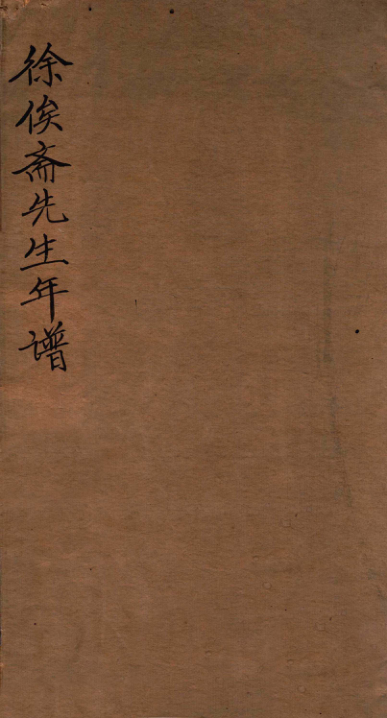 徐俟斋先生年谱